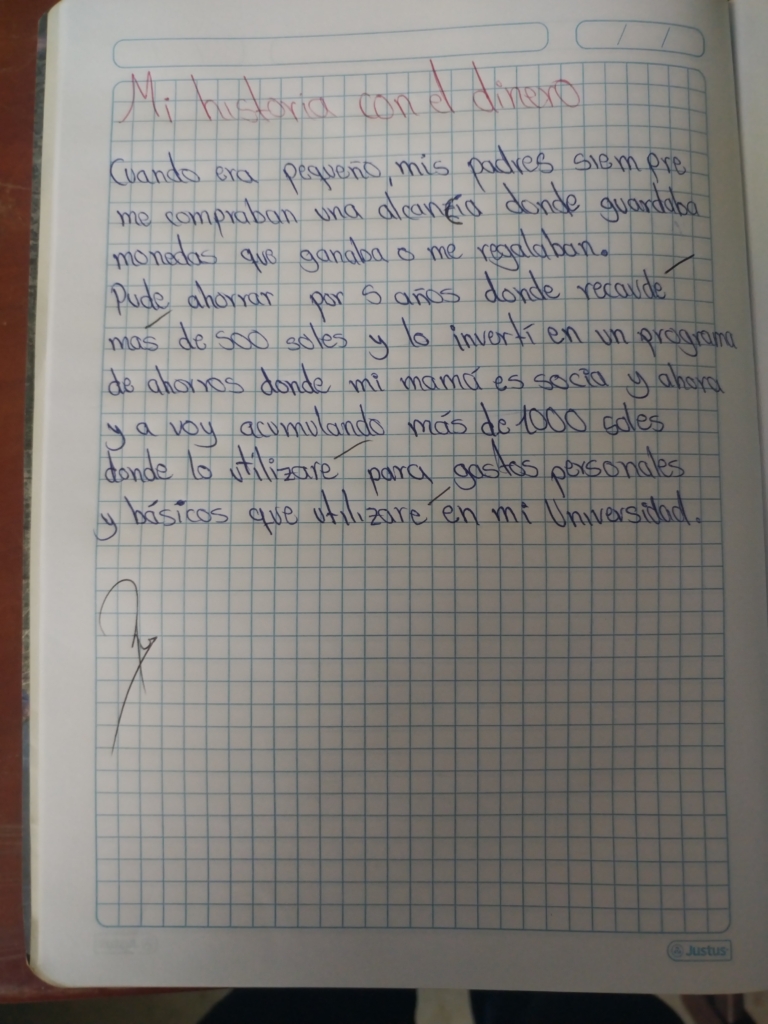 / /
Mi historia con el dinero
Cuando era pequeño, mis padres siempre
me compraban una alcancía donde guardaba
monedas que ganaba o me regalaban.
Pude ahorrar por 5 años donde recaudé
más de 500 soles y lo invertí en un programa
de ahorros donde mi mamá es socia y ahora
ya voy acumulando más de 1000 soles
donde lo utilizaré para gastos personales
y básicos que utilizaré en mi Universidad.
Justus